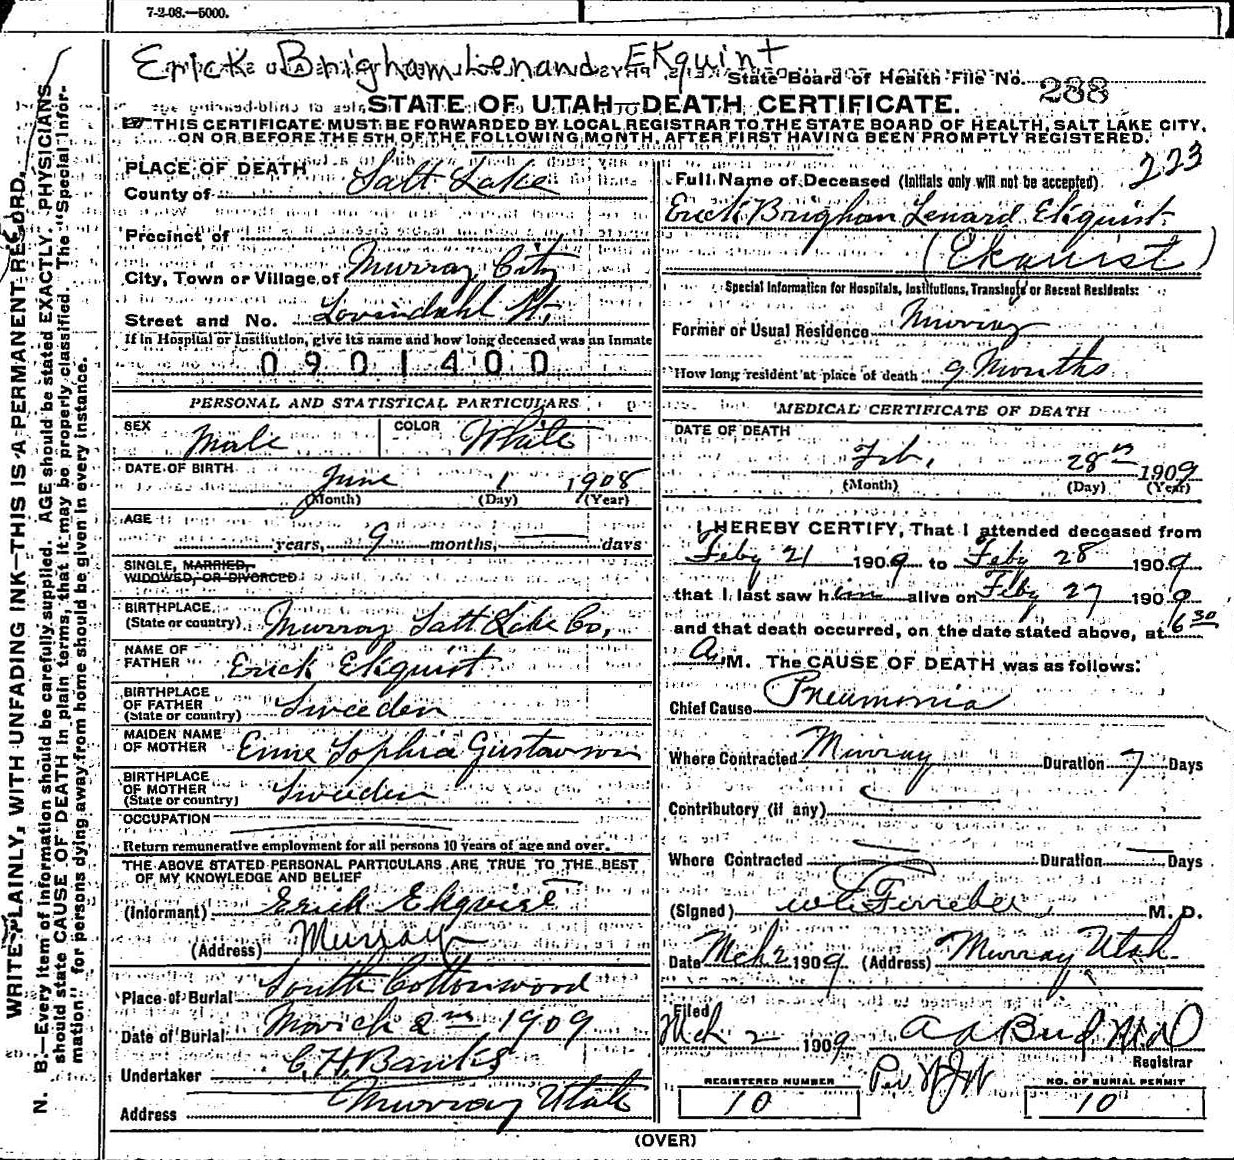 7-2-08.—5000.
Erick Brigham Lenand Ekquint
State Board of Health File No. 288
STATE OF UTAH—DEATH CERTIFICATE.
THIS CERTIFICATE MUST BE FORWARDED BY LOCAL REGISTRAR TO THE STATE BOARD OF HEALTH, SALT LAKE CITY,
ON OR BEFORE THE 5TH OF THE FOLLOWING MONTH, AFTER FIRST HAVING BEEN PROMPTLY REGISTERED.
WRITE PLAINLY, WITH UNFADING INK—THIS IS A PERMANENT RECORD.
N. B.—Every item of information should be carefully supplied. AGE should be stated EXACTLY. PHYSICIANS
should state CAUSE OF DEATH in plain terms, that it may be properly classified. The "Special Infor-
mation" for persons dying away from home should be given in every instance.
PLACE OF DEATH
County of Salt Lake
Precinct of
City, Town or Village of Murray City
Street and No. Lovindahl St.
If in Hospital or Institution, give its name and how long deceased was an Inmate
0901400
PERSONAL AND STATISTICAL PARTICULARS
SEX Male COLOR White
DATE OF BIRTH June 1 1908
(Month) (Day) (Year)
AGE
years, 9 months, — days
SINGLE, MARRIED,
WIDOWED, OR DIVORCED
BIRTHPLACE
(State or country) Murray Salt Lake Co,
NAME OF
FATHER Erick Ekquist
BIRTHPLACE
OF FATHER
(State or country) Sweeden
MAIDEN NAME
OF MOTHER Emme Sophia Gustawson
BIRTHPLACE
OF MOTHER
(State or country) Sweeden
OCCUPATION
Return remunerative employment for all persons 10 years of age and over.
THE ABOVE STATED PERSONAL PARTICULARS ARE TRUE TO THE BEST
OF MY KNOWLEDGE AND BELIEF
(Informant) Erick Ekquist
(Address) Murray
Place of Burial South Cottonwood
Date of Burial March 2nd 1909
Undertaker C. H. Banks
Address Murray Utah
223
Full Name of Deceased (Initials only will not be accepted)
Erick Brighan Lenard Ekquist
(Ekquist)
Special Information for Hospitals, Institutions, Transients or Recent Residents:
Former or Usual Residence Murray
How long resident at place of death 9 Months
MEDICAL CERTIFICATE OF DEATH
DATE OF DEATH
Feb, 28th 1909
(Month) (Day) (Year)
I HEREBY CERTIFY, That I attended deceased from
Feby 21 1909 to Feby 28 1909
that I last saw him alive on Feby 27 1909
and that death occurred, on the date stated above, at 6 30
A. M. The CAUSE OF DEATH was as follows:
Chief Cause Pneumonia
Where Contracted Murray Duration 7 Days
Contributory (if any)
Where Contracted Duration Days
(Signed) M. D.
Date Mch 2 1909 (Address) Murray Utah
Filed
Mch 2 1909 M D
Registrar
REGISTERED NUMBER Per NO. OF BURIAL PERMIT
10 10
(OVER)